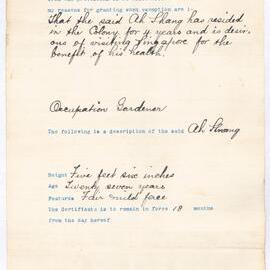 my reasons for granting such exemption are :-
That the said Ah Shang has resided
in the Colony for 4 years and is desir-
ous of visiting Singapore for the
benefit of his health.
Occupation Gardener
The following is a description of the said Ah Shang
Height Five feet six inches
Age Twenty seven years
Features Fair mild face
The Certificate is to remain in force 18 months
from the day hereof